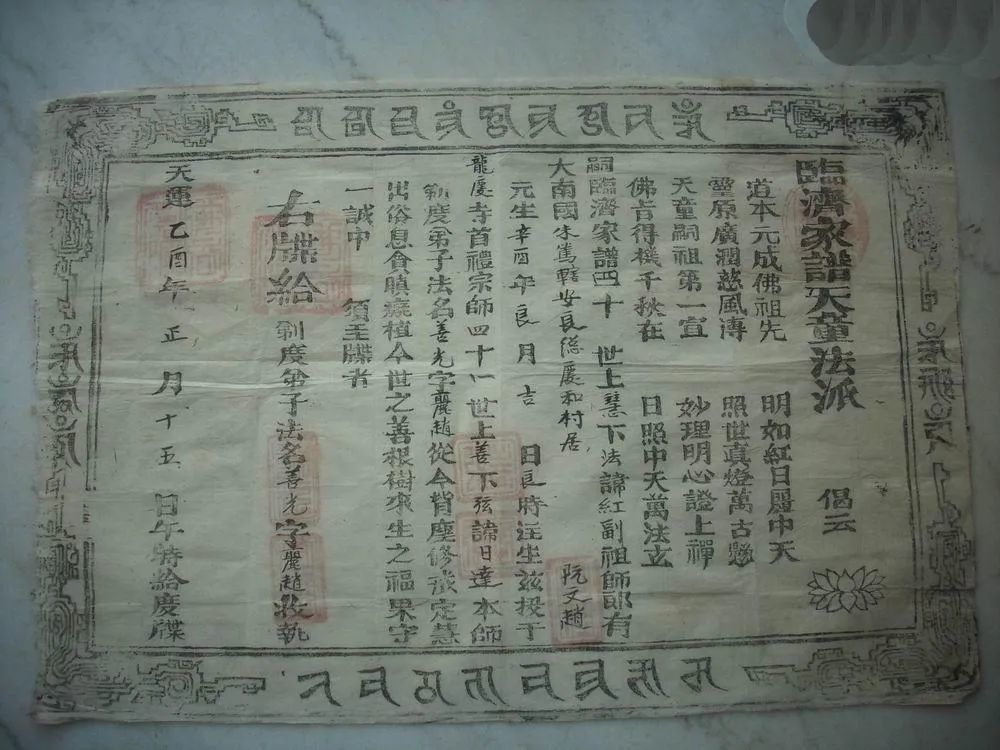 臨濟家譜天童法派 偈云
道本元成佛祖先 明如紅日麗中天
靈原廣潤慈風溥 照世真燈萬古懸
天童嗣祖第一宣 妙理明心證上禪
佛旨得機千秋在 日照中天萬法玄
嗣臨濟家譜四十 世上慧下法諱紅副祖師即有
大南國 安良總慶和村居
阮文趙
元生辛酉年良月吉 日良時注生茲授于
龍慶寺首禮宗師四十一世上善下 諱日達本師
剃度弟子法名善光字麗趙從今背塵修戒定慧
出俗息貪瞋癡植今世之善根樹來生之福果守
一誠中 須至牒者
右牒給 剃度弟子法名善光字麗趙收執
天運乙酉年正月十五日午時給度牒